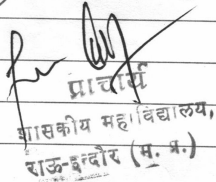 प्राचार्य
शासकीय महाविद्यालय,
राऊ-इन्दौर (म. प्र.)